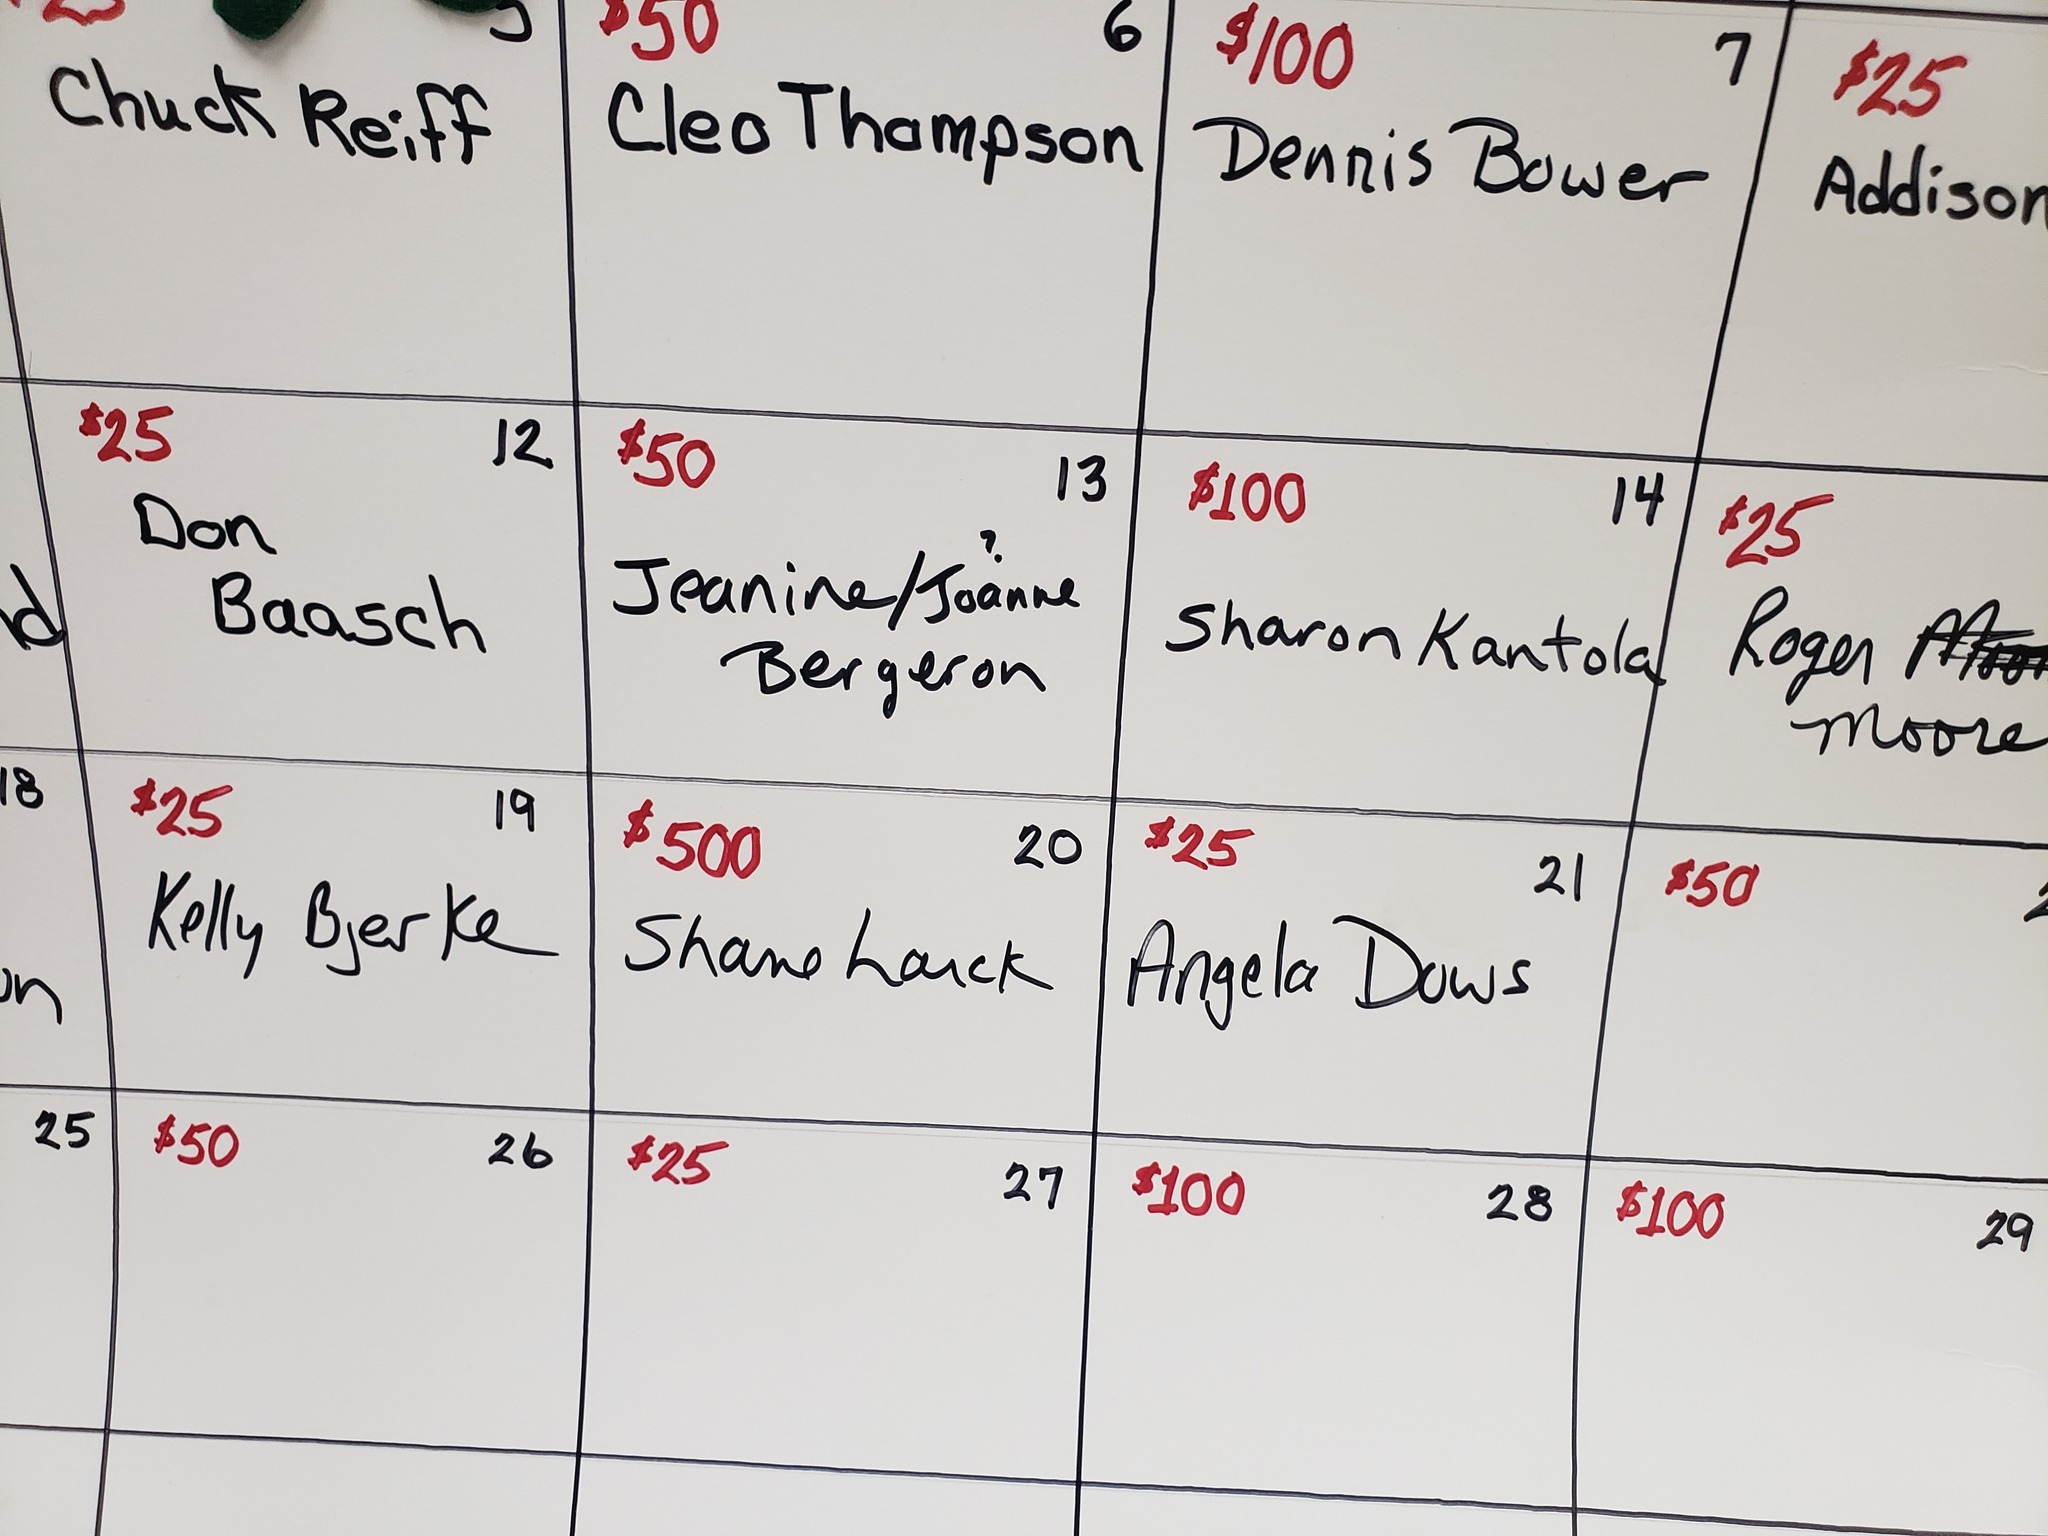 5
Chuck Reiff
$50 6
Cleo Thompson
$100 7
Dennis Bower
$25
Addison
$25 12
Don
Baasch
$50 13
?
Jeanine/Joanne
Bergeron
$100 14
Sharon Kantola
$25
Roger
Moore
18
$25 19
Kelly Bjerke
$500 20
Shane Larck
$25 21
Angela Dows
$50
25
$50 26
$25 27
$100 28
$100 29